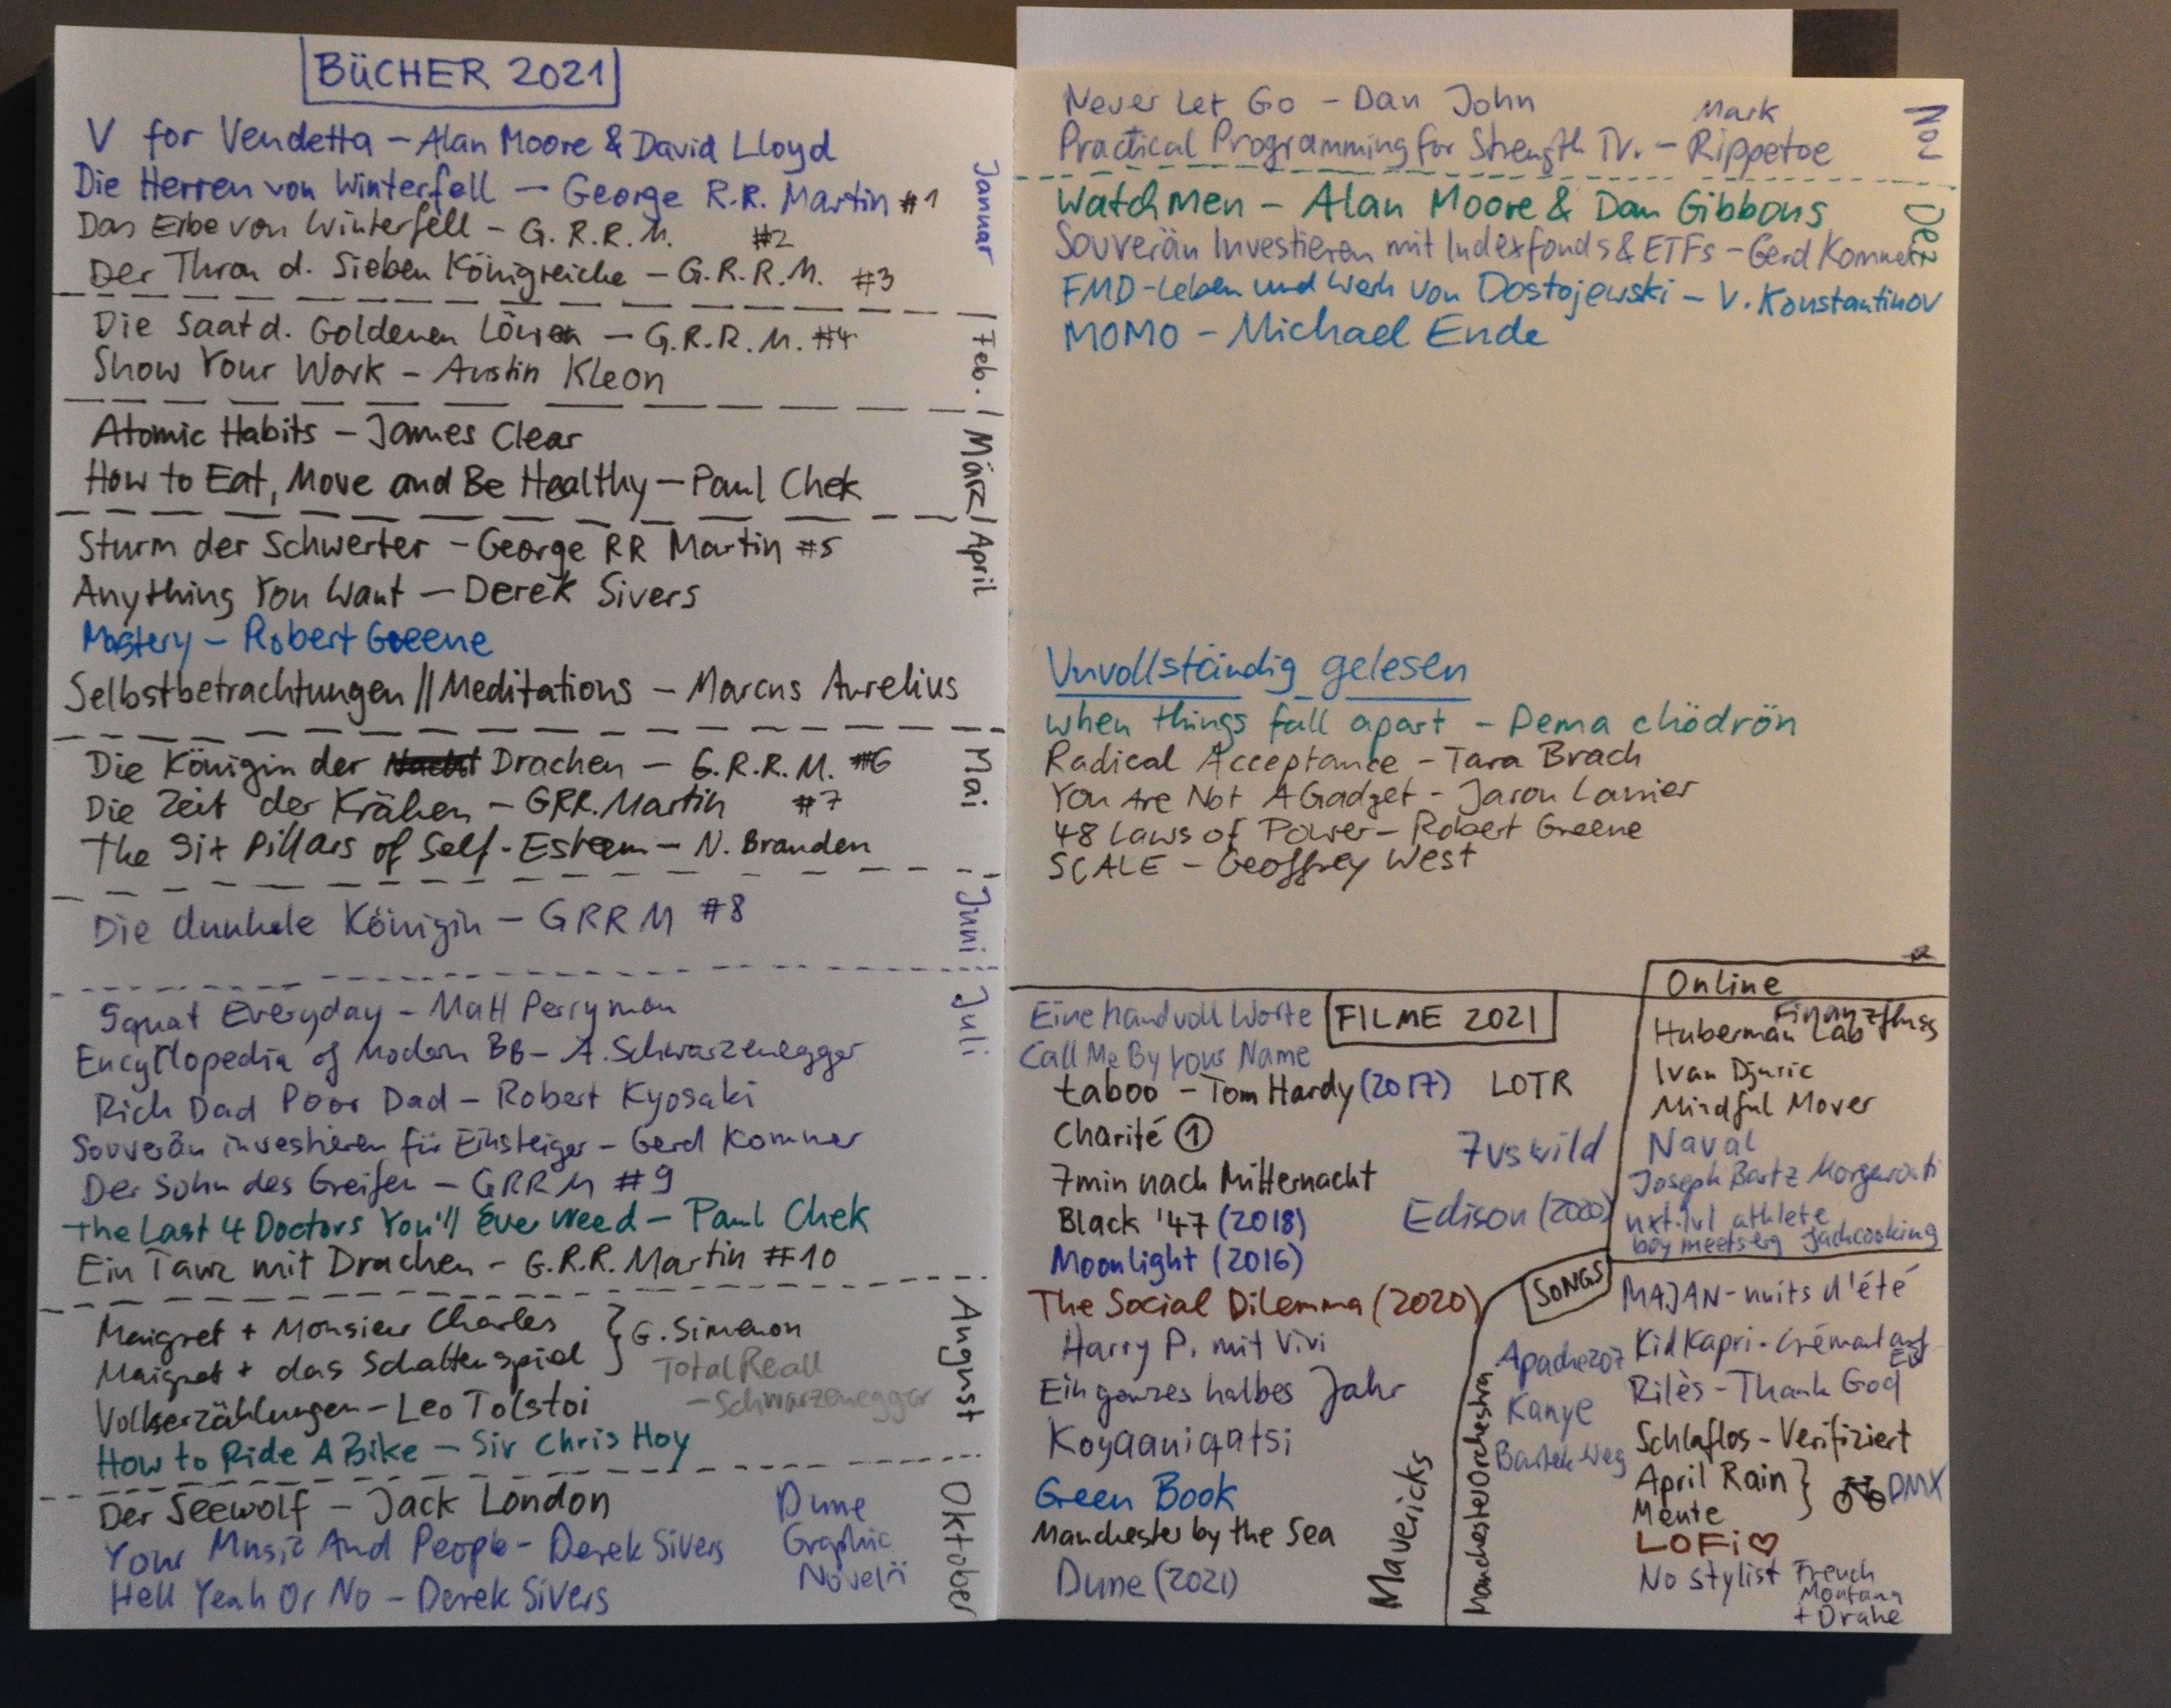 BÜCHER 2021
V for Vendetta – Alan Moore & David Lloyd
Die Herren von Winterfell – George R.R. Martin #1
Das Erbe von Winterfell – G.R.R.M. #2
Der Thron d. Sieben Königreiche – G.R.R.M. #3
Januar
Die Saat d. Goldenen Löwen – G.R.R.M. #4
Show Your Work – Austin Kleon
Feb.
Atomic Habits – James Clear
How to Eat, Move and Be Healthy – Paul Chek
März
Sturm der Schwerter – George RR Martin #5
Anything You Want – Derek Sivers
Mastery – Robert Greene
Selbstbetrachtungen // Meditations – Marcus Aurelius
April
Die Königin der Drachen – G.R.R.M. #6
Die Zeit der Krähen – GRR. Martin #7
The Six Pillars of Self-Esteem – N. Branden
Mai
Die dunkele Königin – GRRM #8
Juni
Squat Everyday – Matt Perryman
Encyclopedia of Modern BB – A. Schwarzenegger
Rich Dad Poor Dad – Robert Kyosaki
Souverän investieren für Einsteiger – Gerd Kommer
Der Sohn des Greifen – GRRM #9
The Last 4 Doctors You'll Ever Need – Paul Chek
Ein Tanz mit Drachen – G.R.R. Martin #10
Juli
Maigret + Monsieur Charles
Maigret + das Schattenspiel } G. Simenon
Total Recall
– Schwarzenegger
Volkserzählungen – Leo Tolstoi
How to Ride A Bike – Sir Chris Hoy
August
Der Seewolf – Jack London
Your Music And People – Derek Sivers
Hell Yeah Or No – Derek Sivers
Dune
Graphic
Novel
Oktober
Never Let Go – Dan John
Practical Programming for Strength Tr. – Mark Rippetoe
Nov
Watchmen – Alan Moore & Dan Gibbons
Souverän Investieren mit Indexfonds & ETFs – Gerd Kommer
FMD – Leben und Werk von Dostojewski – V. Konstantinov
MOMO – Michael Ende
Dez
Unvollständig gelesen
When things fall apart – Pema Chödrön
Radical Acceptance – Tara Brach
You Are Not A Gadget – Jaron Lanier
48 Laws of Power – Robert Greene
SCALE – Geoffrey West
FILME 2021
Eine handvoll Worte
Call Me By Your Name
taboo – Tom Hardy (2017)
LOTR
Charité ①
7vswild
7min nach Mitternacht
Edison (2020)
Black '47 (2018)
Moonlight (2016)
The Social Dilemma (2020)
Harry P. mit Vivi
Ein ganzes halbes Jahr
Koyaaniqatsi
Green Book
Manchester by the Sea
Dune (2021)
Mavericks
Online
Finanzfluss
Huberman Lab
Ivan Djuric
Mindful Mover
Naval
Joseph Bartz
nxt.lvl athlete
boy meets eg
SONGS
MAJAN – nuits d'été
Kid Kapri – Crémant auf Eis
Rilès – Thank God
Schlaflos – Verifiziert
April Rain
Mente
DMX
LOFi ♡
No Stylist French
Montana
+ Drake
Apache207
Kanye
Manchester Orchestra